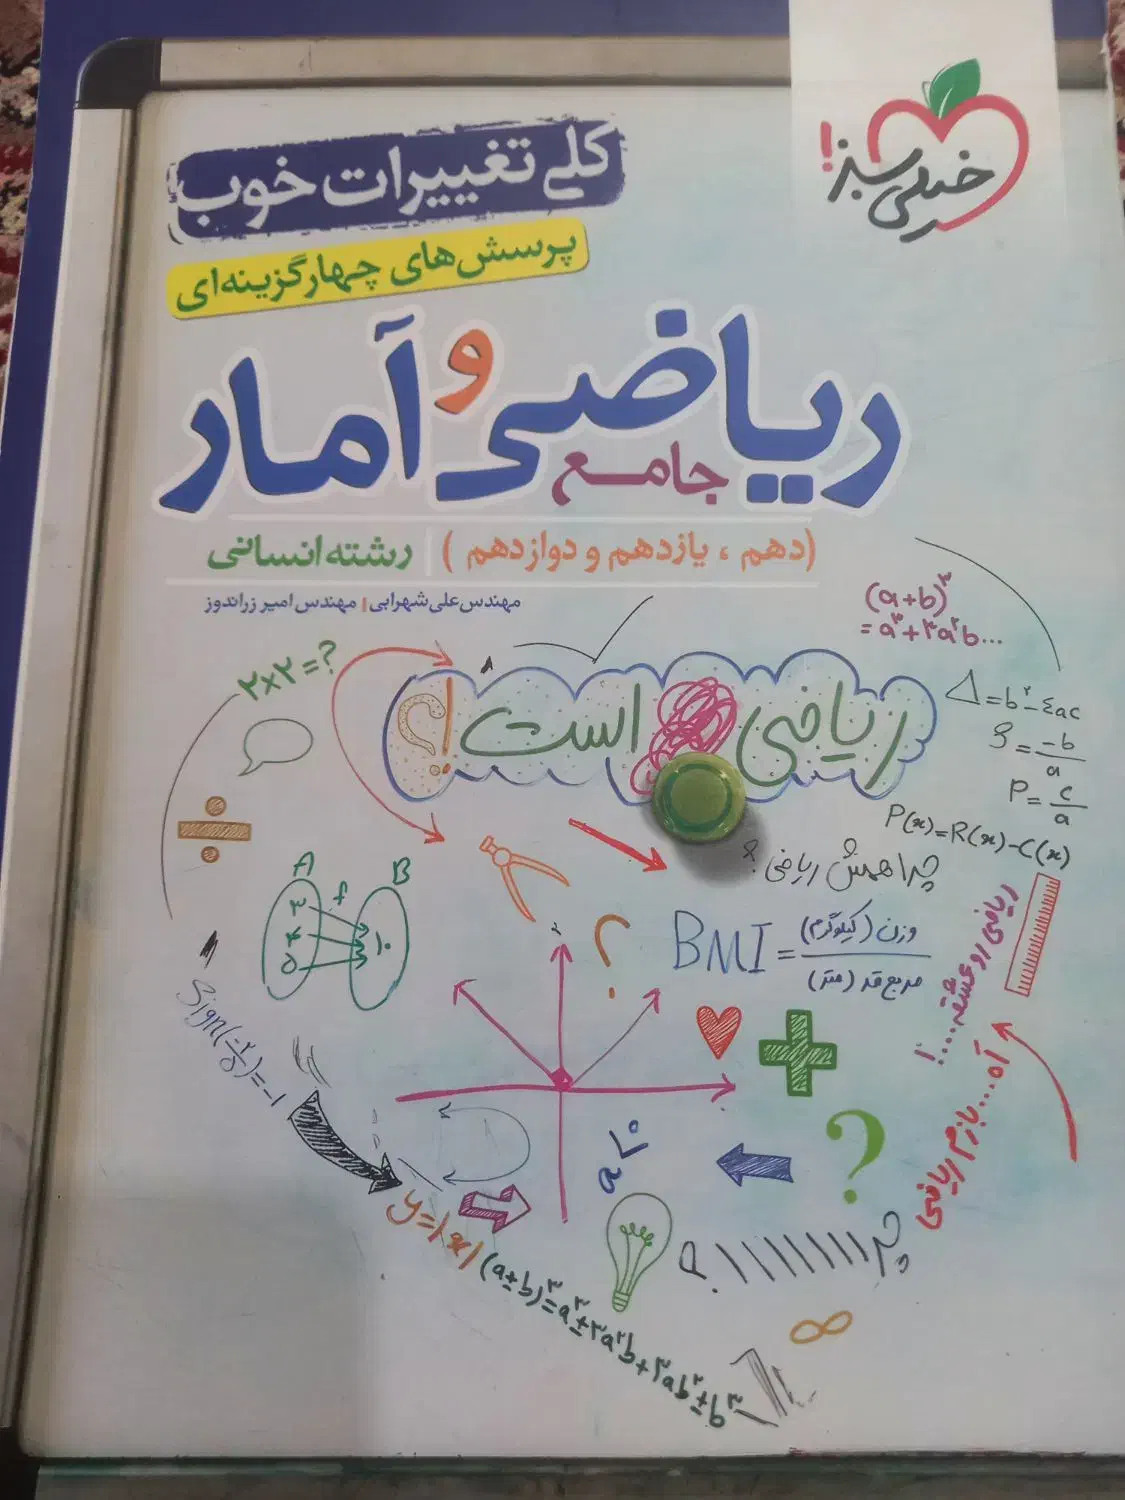 خیلی سبز!
کلی تغییرات خوب
پرسش‌های چهارگزینه‌ای
ریاضی و آمار
جامع
(دهم ، یازدهم و دوازدهم) | رشته انسانی
مهندس علی شهرابی | مهندس امیر زراندوز
(a+b)^۳
= a^۳+۳a^۲b...
۲×۲=?
ریاضی است !؟
Δ=b^۲-٤ac
S=-b/a
P=c/a
P(x)=R(x)-C(x)
چرا همش ریاضی؟
A f B
۳
۴
۵
۱۰
BMI = وزن (کیلوگرم) / مربع قد (متر)
ریاضی رو عشقه....!
آه... بازم ریاضی
Sign(-۲/۵)=-1
?
y=|x|
?
چراااااااا؟
(a±b)^۳=a^۳±۳a^۲b+۳ab^۲±b^۳
∞